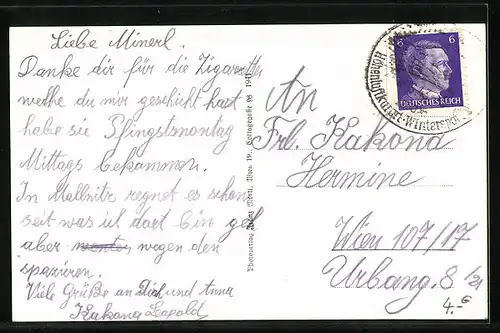 Liebe Minerl.
Danke dir für die Zigaretten
welche du mir geschickt hast
habe sie Pfingstmontag
Mittags bekommen.
In Mallnitz regnet es schon
seit was ich dort bin geh
aber wegen den
spazieren.
Viele Grüße an Dich und Anna
Kakona Leopold
Wien 19.
1941
An
Frl. Kakona
Hermine
Wien 107/17
Urbang. 8/21
4.-
6 6
DEUTSCHES REICH
Höhenluftkurort-Wintersport